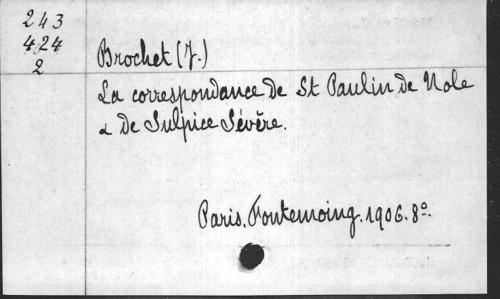 243
424
2
Brochet (J.)
La correspondance de St Paulin de Nole
& de Sulpice Sévère.
Paris. Fontemoing. 1906. 8º.